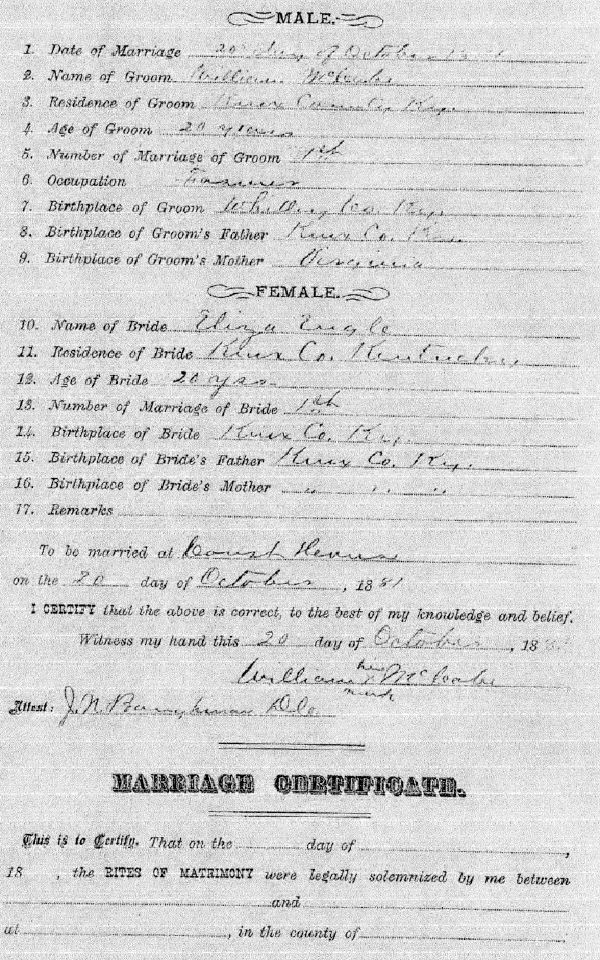 MALE.
1. Date of Marriage 20 day of October 18
2. Name of Groom William McCabe
3. Residence of Groom Knox County Ky.
4. Age of Groom 20 years
5. Number of Marriage of Groom 1st
6. Occupation Farmer
7. Birthplace of Groom Whitley Co. Ky.
8. Birthplace of Groom's Father Knox Co. Ky.
9. Birthplace of Groom's Mother Virginia
FEMALE.
10. Name of Bride Eliza Engle
11. Residence of Bride Knox Co. Kentucky
12. Age of Bride 20 yrs.
13. Number of Marriage of Bride 1st
14. Birthplace of Bride Knox Co. Ky.
15. Birthplace of Bride's Father Knox Co. Ky.
16. Birthplace of Bride's Mother " " "
17. Remarks
To be married at Court House
on the 20 day of October, 1881
I CERTIFY that the above is correct, to the best of my knowledge and belief.
Witness my hand this 20 day of October, 188
William his x McCabe
mark
Attest: J. N. D.C.
MARRIAGE CERTIFICATE.
This is to Certify, That on the day of ,
18 , the RITES OF MATRIMONY were legally solemnized by me between
and
at , in the county of